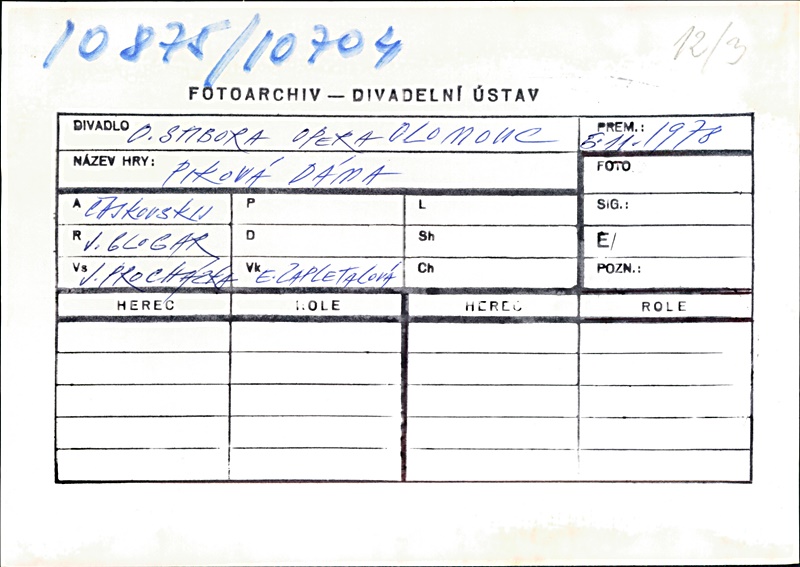 10875/10704
12/3
FOTOARCHIV — DIVADELNÍ ÚSTAV
DIVADLO O. STIBORA OPERA OLOMOUC
PREM.: 5.11.1978
NÁZEV HRY: PIKOVÁ DÁMA
FOTO
A ČAJKOVSKIJ P L SIG.:
R J. GLOGAR D Sh Č/
Vs J. PROCHÁZKA Vk E. ZAPLETALOVÁ Ch POZN.:
HEREC ROLE HEREC ROLE